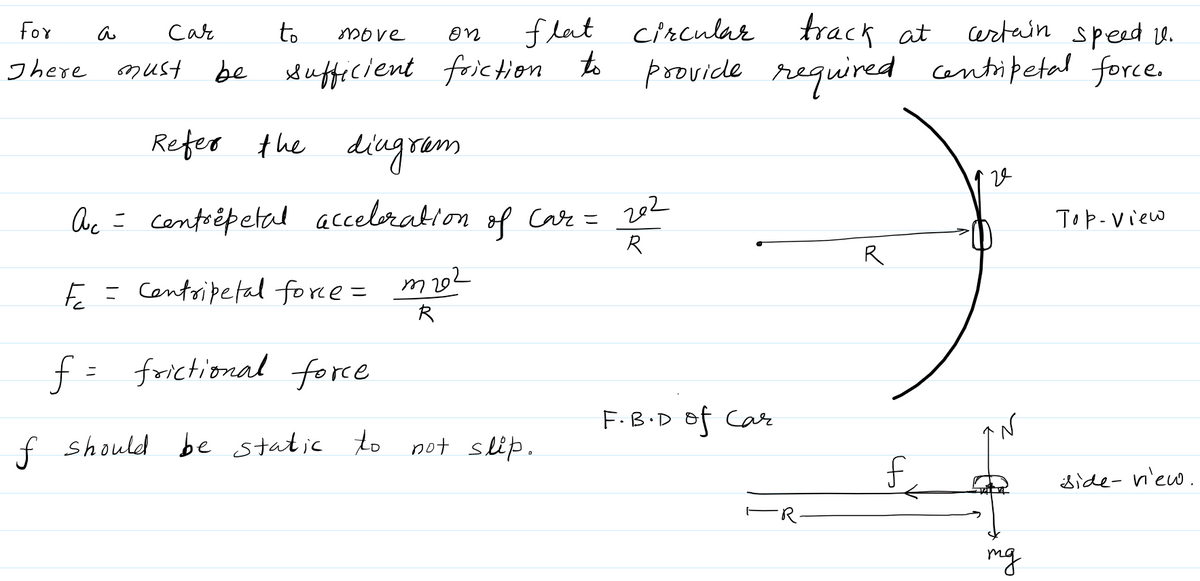 For a car to move on flat circular track at certain speed v.
There must be sufficient friction to provide required centripetal force.
Refer the diagram
v
a_c = centripetal acceleration of car = v²/R
Top-view
R
F_c = Centripetal force = mv²/R
f = frictional force
F.B.D of Car
N
f should be static to not slip.
f
side-view.
R
mg